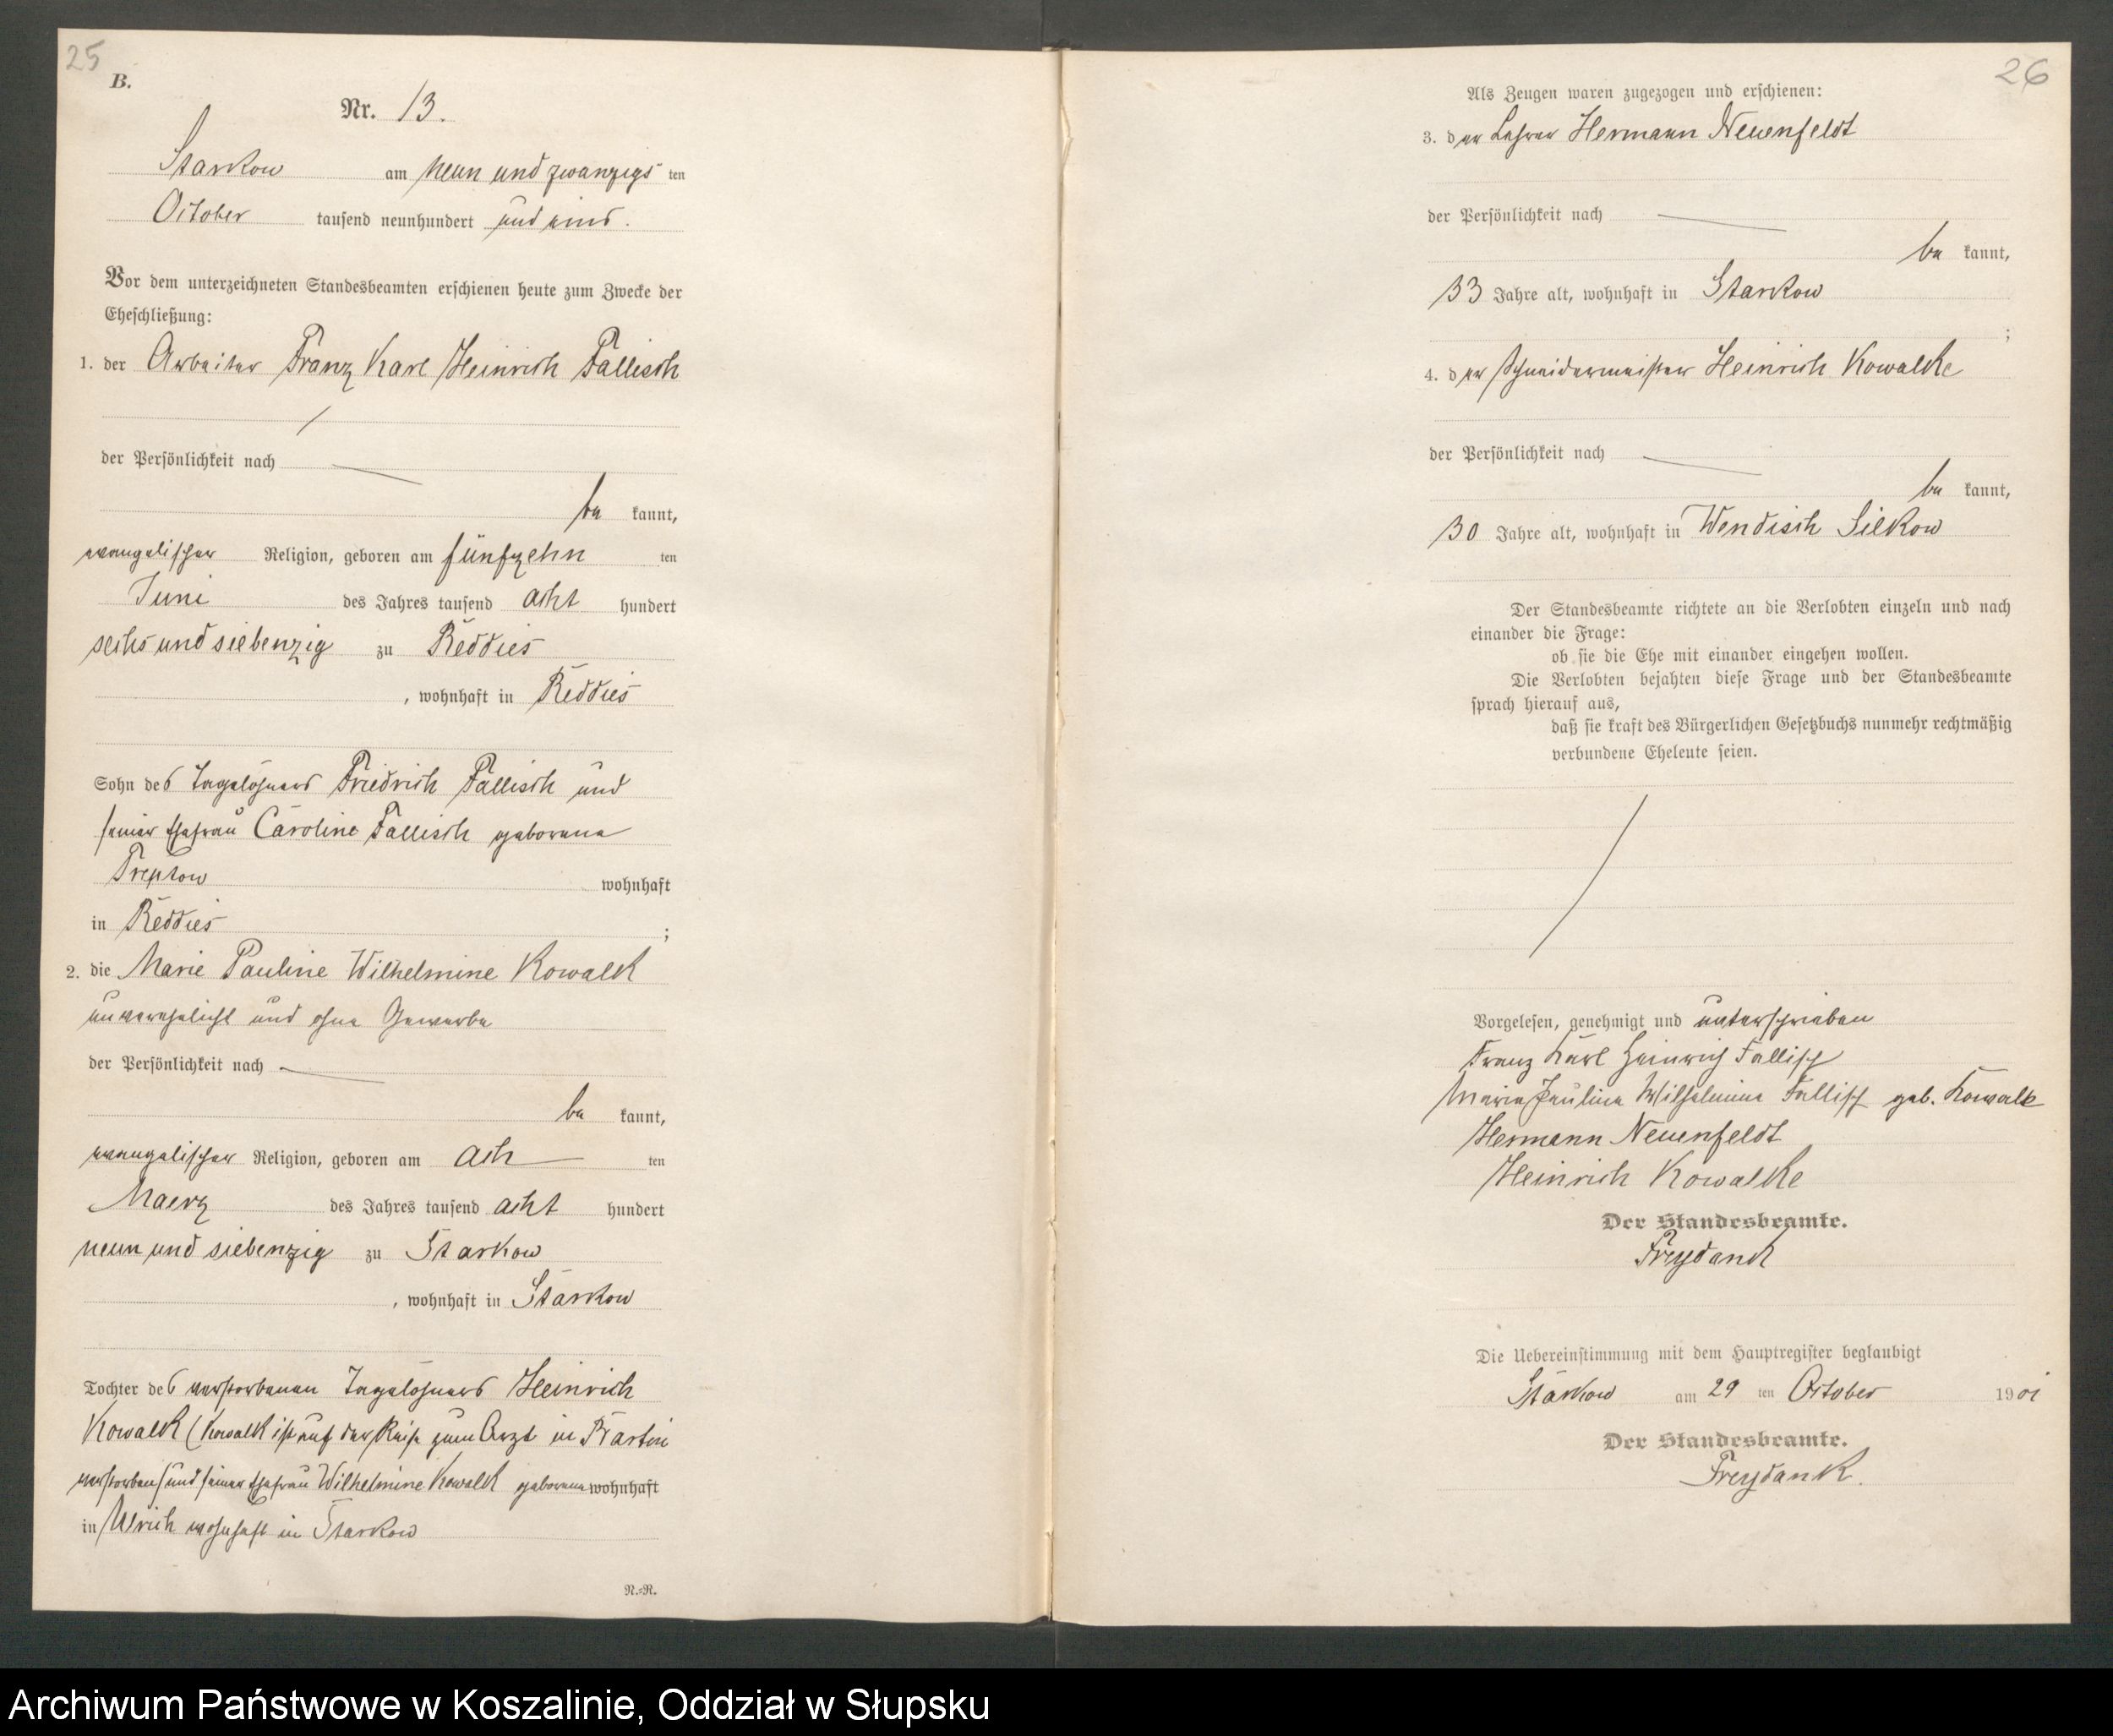 25
B.
Nr. 13.
Starkow am neun und zwanzigs ten
October tausend neunhundert und eins.
Vor dem unterzeichneten Standesbeamten erschienen heute zum Zwecke der
Eheschließung:
1. der Arbeiter Franz Karl Heinrich Fallisch
der Persönlichkeit nach
be kannt,
evangelischer Religion, geboren am fünfzehn ten
Juni des Jahres tausend acht hundert
sechs und siebenzig zu Reddies
, wohnhaft in Reddies
Sohn des Tagelöhners Friedrich Fallisch und
seiner Ehefrau Caroline Fallisch geborene
Treptow wohnhaft
in Reddies ;
2. die Marie Pauline Wilhelmine Kowalk
unverehelicht und ohne Gewerbe
der Persönlichkeit nach
be kannt,
evangelischer Religion, geboren am ach ten
Maerz des Jahres tausend acht hundert
neun und siebenzig zu Starkow
, wohnhaft in Starkow
Tochter des verstorbenen Tagelöhners Heinrich
Kowalk (Kowalk ist auf der Reise zum Arzt in
verstorben) und seiner Ehefrau Wilhelmine Kowalk geborene wohnhaft
in Ulrich wohnhaft in Starkow
N.=R.
26
Als Zeugen waren zugezogen und erschienen:
3. der Lehrer Hermann Neuenfeldt
der Persönlichkeit nach
be kannt,
33 Jahre alt, wohnhaft in Starkow
;
4. der Schneidermeister Heinrich Kowalke
der Persönlichkeit nach
be kannt,
30 Jahre alt, wohnhaft in Wendisch Silkow
Der Standesbeamte richtete an die Verlobten einzeln und nach
einander die Frage:
ob sie die Ehe mit einander eingehen wollen.
Die Verlobten bejahten diese Frage und der Standesbeamte
sprach hierauf aus,
daß sie kraft des Bürgerlichen Gesetzbuchs nunmehr rechtmäßig
verbundene Eheleute seien.
Vorgelesen, genehmigt und unterschrieben
Franz Karl Heinrich Fallisch
Marie Pauline Wilhelmine Fallisch geb. Kowalk
Hermann Neuenfeldt
Heinrich Kowalke
Der Standesbeamte.
Freydank
Die Uebereinstimmung mit dem Hauptregister beglaubigt
Starkow am 29 ten October 1901
Der Standesbeamte.
Freydank.
Archiwum Państwowe w Koszalinie, Oddział w Słupsku